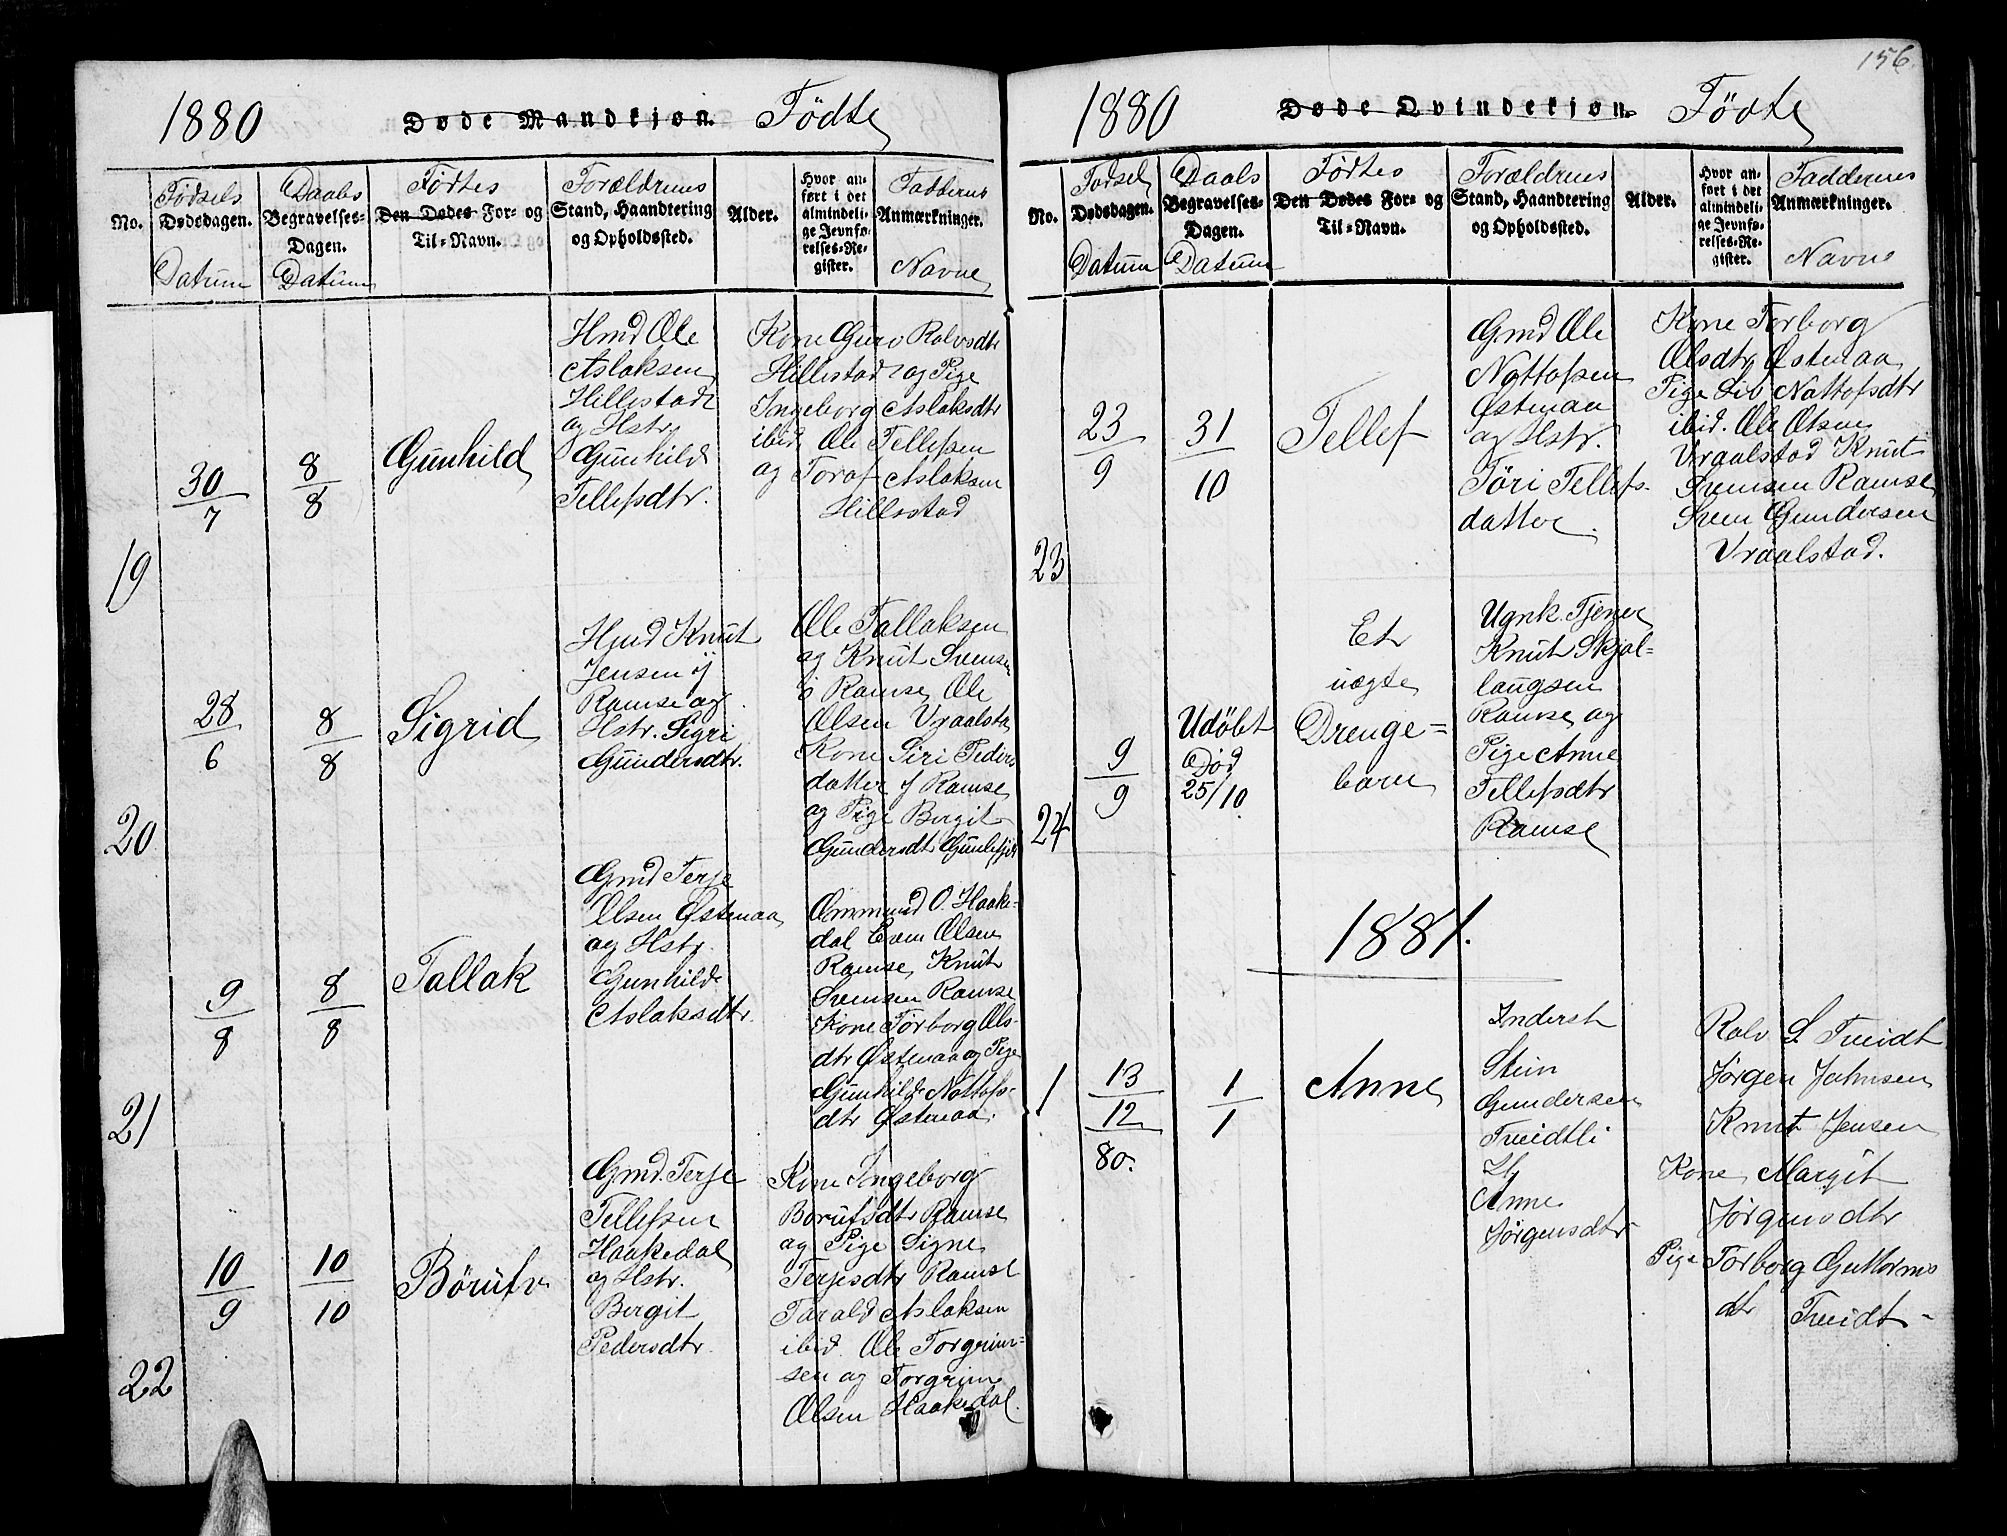 1880 Døde Mandkjøn. Fødte
No.
Fødsels Dødedagen. Datum
Daabs Begravelses-Dagen. Datum
Fødtes
Den Dødes For- og
Til-Navn.
Forældrenes
Stand, Haandtering
og Opholdssted.
Alder.
Hvor an-
ført i det
almindeli-
ge Jevnfø-
relses-Re-
gister.
Faddernes
Anmærkninger.
Navne
19
30/7
8/8
Gunhild
Hmd Ole
Aslaksen
Hillestad
og Hstr.
Gunhild
Tellefsdtr.
Kone Guro Rolvsdtr
Hillestad og Pige
Ingeborg Aslaksdtr
ibid. Ole Tellefsen
og Toraf Aslaksen
Hillestad
20
28/6
8/8
Sigrid
Hmd Knut
Jensen
Ramse og
Hstr. Sigri
Gundersdtr.
Ole Tallaksen
og Knut Svensen
Ramse, Ole
Olsen Vraalsta
Kone Siri Peders
datter f Ramse
og Pige Bergit
Gundersdt
21
9/8
8/8
Tallak
Gmd Terje
Olsen Østenaa
og Hstr.
Gunhild
Aslaksdtr.
Ommund O. Haake-
dal Even Olsen
Ramse, Knut
Svensen Ramse
Kone Torborg Ols-
dtr Østenaa og Pige
Gunhild Nottofs-
dtr Østenaa.
22
10/9
10/10
Børulv
Gmd. Terje
Tellefsen
Haakedal
og Hstr.
Bergit
Pedersdtr.
Kone Ingeborg
Borufsdtr Ramse
og Pige Signe
Terjesdtr Ramse
Tarald Aslaksen
ibid. Ole Torgrim-
sen og Torgrim
Olsen Haakedal.
156.
1880 Døde Qvindekjøn. Fødte
No.
Fødsel Dødsdagen. Datum
Daabs Begravelses-Dagen. Datum
Fødtes
Den Dødes For- og
Til-Navn.
Forældrenes
Stand, Haandtering
og Opholdssted.
Alder.
Hvor an-
ført i det
almindeli-
ge Jevnfø-
relses-Re-
gister.
Faddernes
Anmærkninger.
Navne
23
23/9
31/10
Tellef
Gmd Ole
Nottofsen
Østenaa
og Hstr.
Tøri Tellefs-
datter.
Kone Torborg
Olsdtr Østenaa
Pige Siv Nottofsdtr
ibid. Ole Olsen
Vraalstad Knut
Svensen Ramse
Sven Gundersen
Vraalstad.
24
9/9
Udøbt
Død
25/10
Et
uægte
Drenge-
barn
Ugnk. Tjener
Knut Skjøl-
laugsen
Ramse og
Pige Anne
Tellefsdtr
Ramse
1881.
1
13/12
80.
1/1
Anne
Inderst
Stein
Gundersen
Tveidtli
Anne
Jørgensdtr
Rolv S. Tveidt
Jørgen Johnsen
Knut Jensen
Kone Margit
Jørgensdtr
Pige Torborg Guttorms
dtr Tveidt-